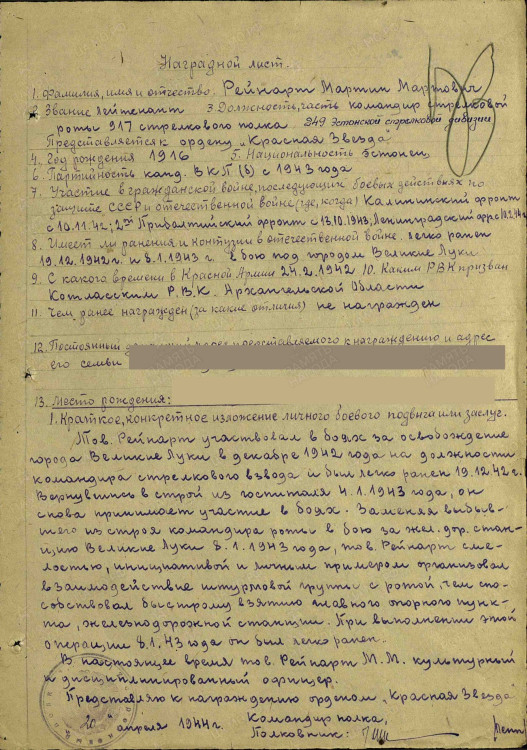 Наградной лист.
1. Фамилия, имя и отчество. Рейнарт Мартин Мартович
2. Звание лейтенант 3. Должность, часть командир стрелковой
роты 917 стрелкового полка 249 Эстонской стрелковой дивизии
Представляется к ордену "Красная Звезда"
4. Год рождения 1916 5. Национальность эстонец
6. Партийность канд. ВКП(б) с 1943 года
7. Участие в гражданской войне, последующих боевых действиях по
защите СССР и отечественной войне (где, когда) Калининский фронт
с 10.11.42; 2ой Прибалтийский фронт с 13.10.1943; Ленинградский фр. с
8. Имеет ли ранения и контузии в отечественной войне. легко ранен
19.12.1942 г. и 8.1.1943 г. в бою под городом Великие Луки
9. С какого времени в Красной Армии 24.2.1942 10. Каким РВК призван
Котласским Р.В.К. Архангельской Области
11. Чем ранее награжден (за какие отличия) не награжден
12. Постоянный представляемого к награждению и адрес
его семьи
13. Место рождения:
1. Краткое, конкретное изложение личного боевого подвига или заслуг.
Тов. Рейнарт участвовал в боях за освобождение
города Великие Луки в декабре 1942 года на должности
командира стрелкового взвода и был легко ранен 19.12.42 г.
Вернувшись в строй из госпиталя 4.1.1943 года, он
снова принимает участие в боях. Заменяя выбыв-
шего из строя командира роты в бою за жел. дор. стан-
цию Великие Луки 8.1.1943 года, тов. Рейнарт сме-
лостью, инициативой и личным примером организовал
взаимодействие штурмовой группы с ротой, чем спо-
собствовал быстрому взятию главного опорного пунк-
та, железнодорожной станции. При выполнении этой
операции 8.1.43 года он был легко ранен.
В настоящее время тов. Рейнарт М.М. культурный
и дисциплинированный офицер.
Представляю к награждению орденом "Красная Звезда"
20 апреля 1944 г. Командир полка,
Полковник: